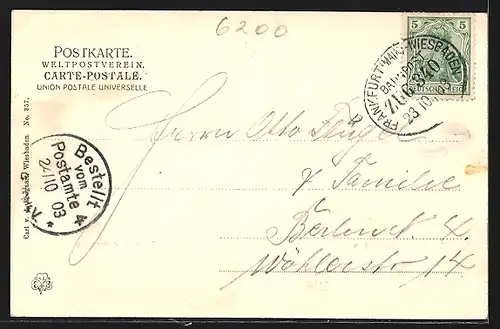 6200
POSTKARTE.
WELTPOSTVEREIN.
CARTE-POSTALE.
UNION POSTALE UNIVERSELLE
5 5
DEUTSCHES REICH
FRANKFURT (MAIN)-WIESBADEN
BAHNPOST
ZUG
23 10
Herrn Otto
& Familie
Berlin
Wöhlerstr 14
Bestellt
vom
Postamte 4
24/10 03
Carl v. Wiesbaden. No. 357.